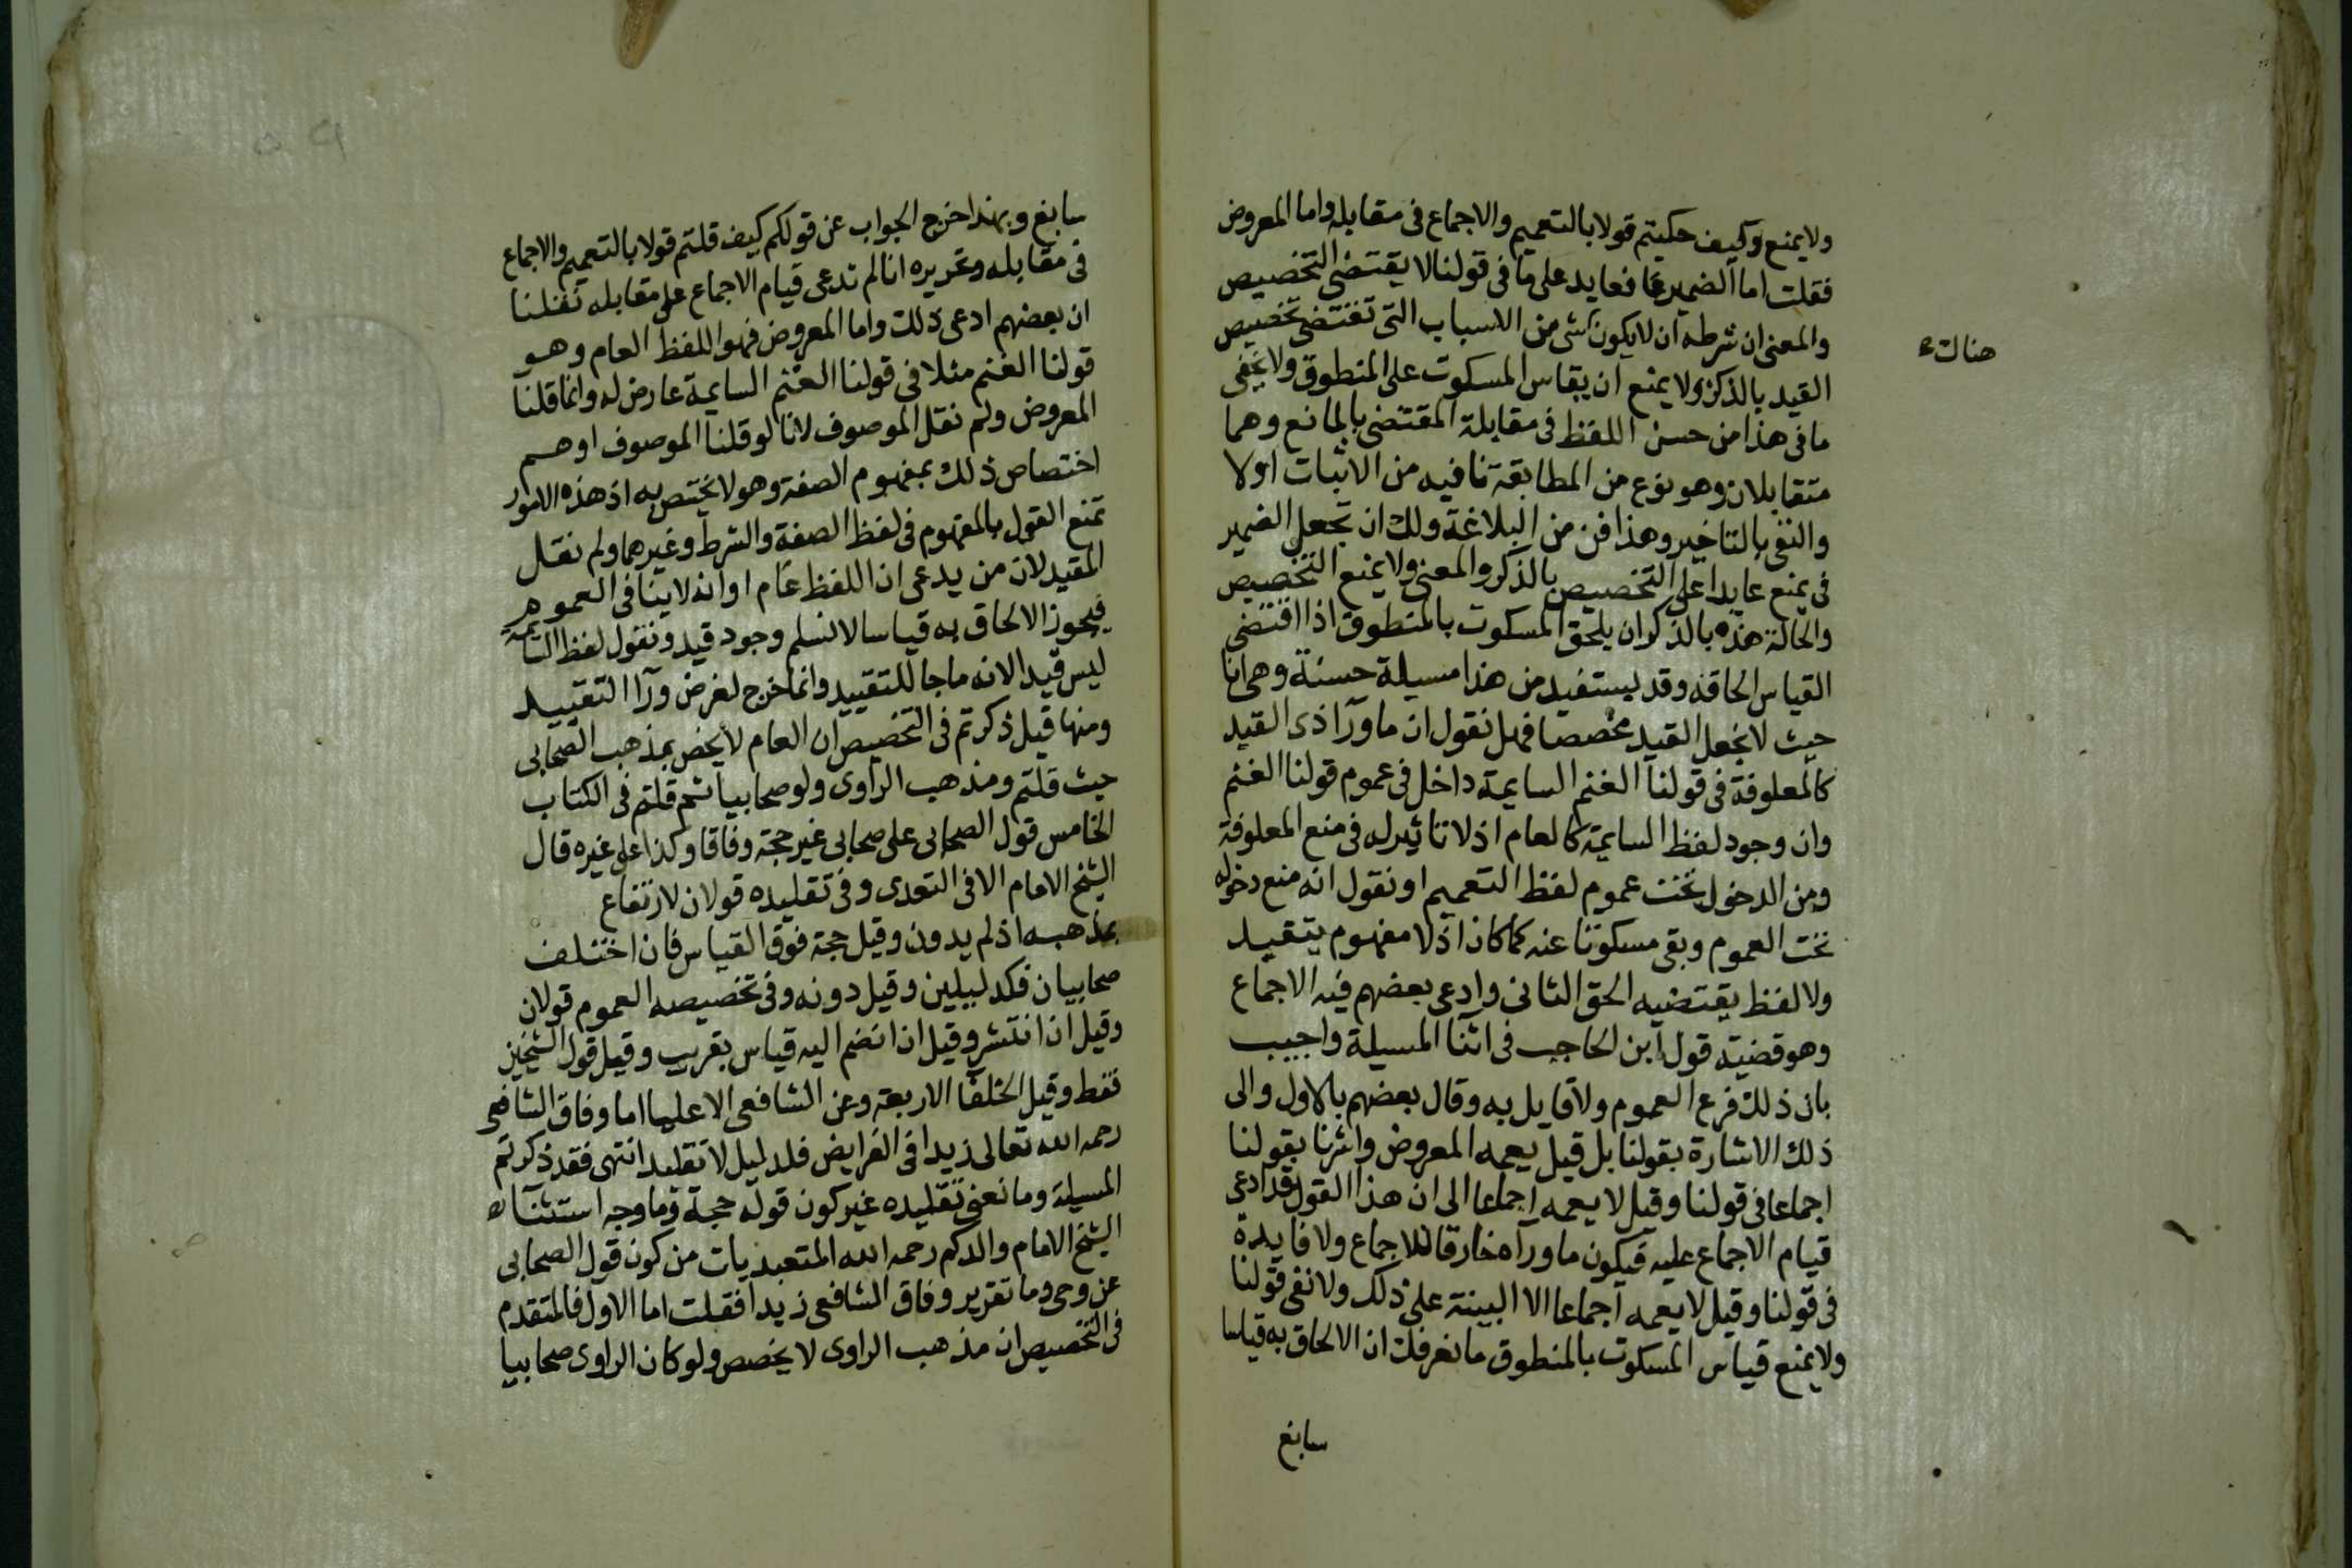 ولا يمنع وكيف حكيتم قولا بالتعميم والاجماع فى مقابله واما المعروض
فقلت اما الضمير فعايد على ما فى قولنا لا يقتضى التخصيص
والمعنى ان شرطه ان لا يكون شى من الاسباب التى تقتضى تخصيص
هناك
القيد بالذكر ولا يمنع ان يقاس المسكوت على المنطوق ولا يخفى
ما فى هذا من حسن اللفظ فى مقابلة المقتضى بالمانع وهما
متقابلان وهو نوع من المطابقة فما فيه من الاثبات اولا
والنفى بالتاخير وهذا فن من البلاغة ولك ان تجعل الضمير
فى يمنع عايدا على التخصيص بالذكر والمعنى ولا يمنع التخصيص
والحالة هذه بالذكر ان يلحق المسكوت بالمنطوق اذا اقتضى
القياس الحاقه وقد يستفيد من هذا مسيلة حسنة وهى انا
حيث لا نجعل القيد مخصصا فهل نقول ان ما ورآ ذى القيد
كالمعلوفة فى قولنا الغنم السايمة داخل فى عموم قولنا الغنم
وان وجود لفظ السايمة كالعام اذ لا تاثير له فى منع المعلوفة
ومن الدخول تحت عموم لفظ التعميم او نقول انه منع دخوله
تحت العموم وبقى مسكوتا عنه كما كان اذ لا مفهوم يتقيد
ولا لفظ يقتضيه الحق الثانى وادعى بعضهم فيه الاجماع
وهو قضية قول ابن الحاجب فى اثنا المسيلة واجيب
بان ذلك فرع العموم ولا قايل به وقال بعضهم بالاول والى
ذلك الاشارة بقولنا بل قيل يعمه المعروض واشرنا بقولنا
اجماعا فى قولنا وقيل لا يعمه اجماعا الى ان هذا القول قد ادعى
قيام الاجماع عليه فيكون ما ورآه خارقا للاجماع ولا فايدة
فى قولنا وقيل لا يعمه اجماعا الا البينة على ذلك ولا نفى قولنا
ولا يمنع قياس المسكوت بالمنطوق ما نعرفك ان الالحاق به قياسا
سايغ
سايغ وبهذا خرج الجواب عن قولكم كيف قلتم قولا بالتعميم والاجماع
فى مقابله وتحريره انا لم ندعى قيام الاجماع على مقابله نقلنا
ان بعضهم ادعى ذلك واما المعروض فهو اللفظ العام وهو
قولنا الغنم مثلا فى قولنا الغنم السايمة عارض له وانما قلنا
المعروض ولم نقل الموصوف لانا لو قلنا الموصوف اوهم
اختصاص ذلك بمفهوم الصفة وهو لا يختص به اذ هذه الامور
تمنع القول بالمفهوم فى لفظ الصفة والشرط وغيرهما ولم نقل
المقيد لان من يدعى ان اللفظ عام او انه لا ينافى العموم
فيجوز الالحاق به قياسا لا نسلم وجود قيد ونقول لفظ السايمة
ليس قيدا لانه ما جا للتقييد وانما خرج لغرض ورآ التقييد
ومنها قيل ذكرتم فى التخصيص ان العام لا يخص بمذهب الصحابى
حيث قلتم ومذهب الراوى ولو صحابيا ثم قلتم فى الكتاب
الخامس قول الصحابى على صحابى غير حجة وفاقا وكذا على غيره قال
الشيخ الامام الا فى التعبدى وفى تقليده قولان لارتفاع
بمذهبه اذ لم يدون وقيل حجة فوق القياس فان اختلف
صحابيان فكدليلين وقيل دونه وفى تخصيصه العموم قولان
وقيل ان انتشر وقيل ان انضم اليه قياس بقريب وقيل قول الشيخين
فقط وقيل الخلفآ الاربعة وعن الشافعى الا عليا اما وفاق الشافعى
رحمه الله تعالى زيدا فى الفرايض فلدليل لا تقليدا انتهى فقد ذكرتم
المسيلة وما نعنى تقليده غير كون قوله حجة وما وجه استثنآء
الشيخ الامام والدكم رحمه الله المتعبديات من كون قول الصحابى
عن وحى وما تقرير وفاق الشافعى زيدا فقلت اما الاول فالمتقدم
فى التخصيص ان مذهب الراوى لا يخصص ولو كان الراوى صحابيا